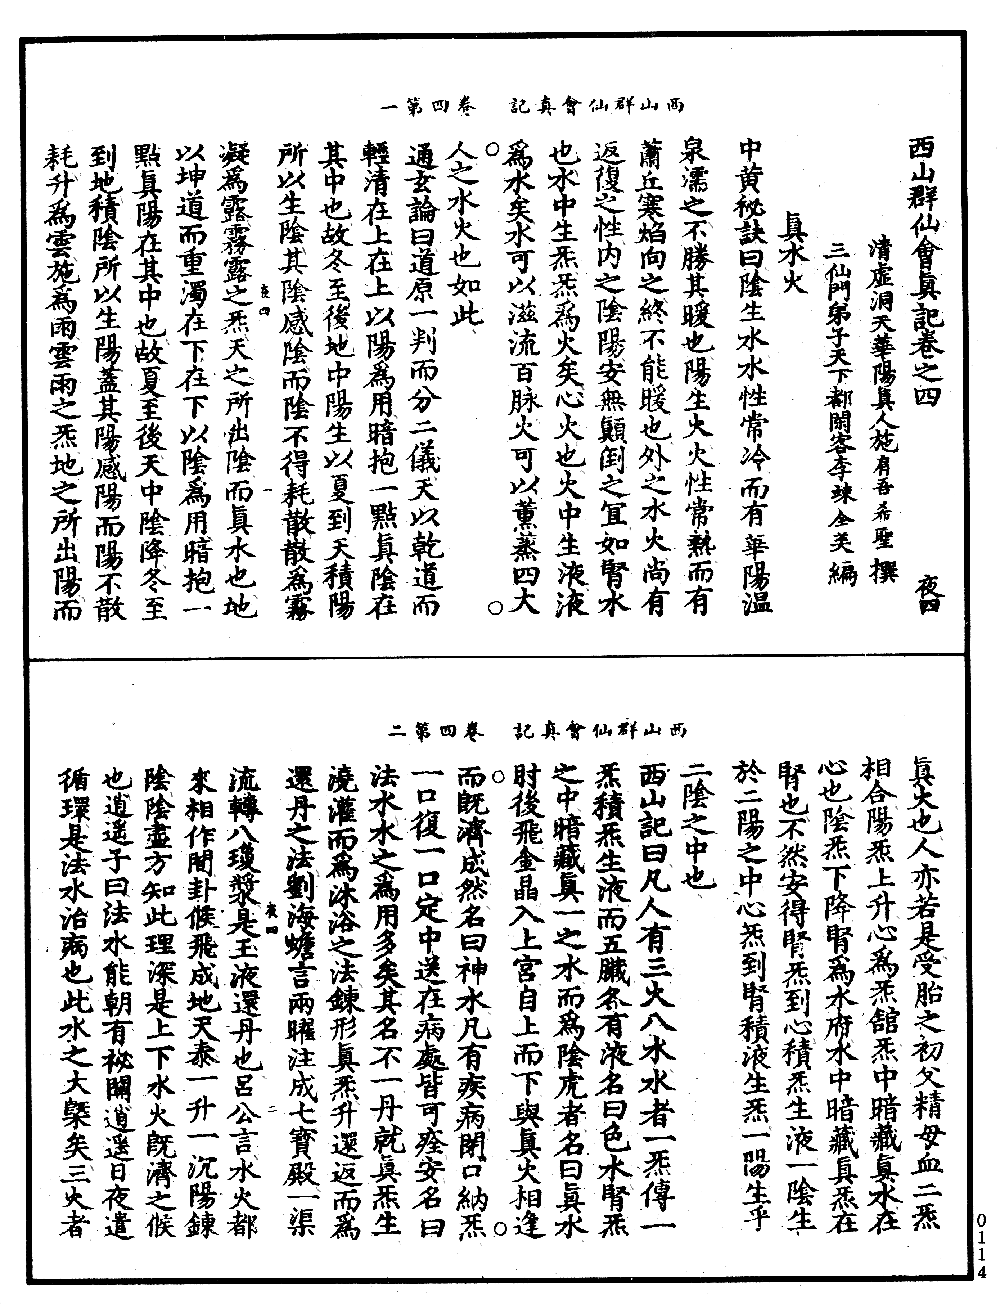 西山群仙會真記　卷四第一
西山群仙會眞記卷之四　夜四
清虛洞天華陽眞人施肩吾希聖撰
三仙門弟子天下都閑客李竦全美編
眞水火
中黃秘訣曰陰生水水性常冷而有華陽溫
泉濡之不勝其暖也陽生火火性常熱而有
蕭丘寒焰向之終不能煖也外之水火尚有
返復之性內之陰陽安無顚倒之宜如腎水
也水中生炁炁爲火矣心火也火中生液液
爲水矣水可以滋流百脉火可以薰蒸四大
人之水火也如此
通玄論曰道原一判而分二儀天以乾道而
輕清在上在上以陽爲用暗抱一點眞陰在
其中也故冬至後地中陽生以夏到天積陽
所以生陰其陰感陰而陰不得耗散散爲霧
夜四　一
凝爲露霧露之炁天之所出陰而眞水也地
以坤道而重濁在下在下以陰爲用暗抱一
點眞陽在其中也故夏至後天中陰降冬至
到地積陰所以生陽蓋其陽感陽而陽不散
耗升爲雲施爲雨雲雨之炁地之所出陽而
西山群仙會真記　卷四第二
眞火也人亦若是受胎之初父精母血二炁
相合陽炁上升心爲炁舘炁中暗藏眞水在
心也陰炁下降腎爲水府水中暗藏眞炁在
腎也不然安得腎炁到心積炁生液一陰生
於二陽之中心炁到腎積液生炁一陽生乎
二陰之中也
西山記曰凡人有三火八水水者一炁傳一
炁積炁生液而五臟各有液名曰色水腎炁
之中暗藏眞一之水而爲陰虎者名曰眞水
肘後飛金晶入上宮自上而下與眞火相逢
而旣濟成然名曰神水凡有疾病閉口納炁
一口復一口定中送在病處皆可痊安名曰
法水水之爲用多矣其名不一丹就眞炁生
澆灌而爲沐浴之法鍊形眞炁升還返而爲
還丹之法劉海蟾言兩曜注成七寶殿一渠
夜四　二
流轉八瓊漿是玉液還丹也呂公言水火都
來相作間卦候飛成地天泰一升一沉陽鍊
陰陰盡方知此理深是上下水火旣濟之候
也逍遥子曰法水能朝有祕關逍遥日夜遣
循環是法水治病也此水之大槩矣三火者
0114